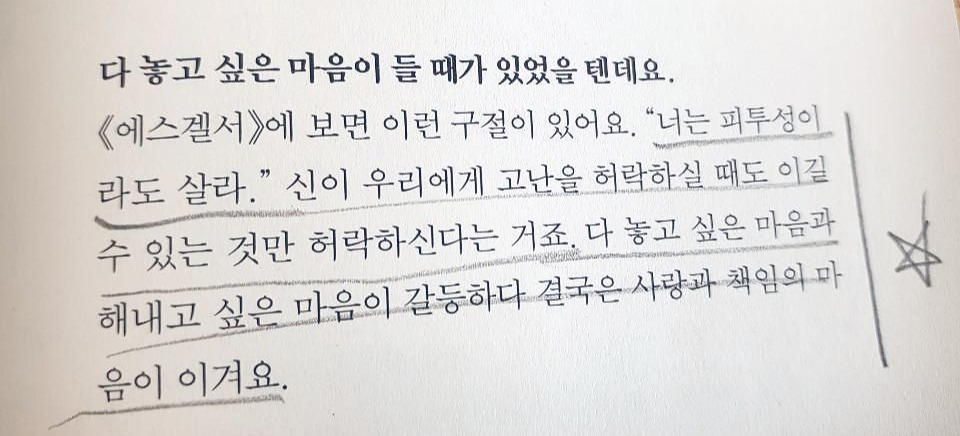 다 놓고 싶은 마음이 들 때가 있었을 텐데요.
《에스겔서》에 보면 이런 구절이 있어요. “너는 피투성이
라도 살라.” 신이 우리에게 고난을 허락하실 때도 이길
수 있는 것만 허락하신다는 거죠. 다 놓고 싶은 마음과
해내고 싶은 마음이 갈등하다 결국은 사랑과 책임의 마
음이 이겨요.